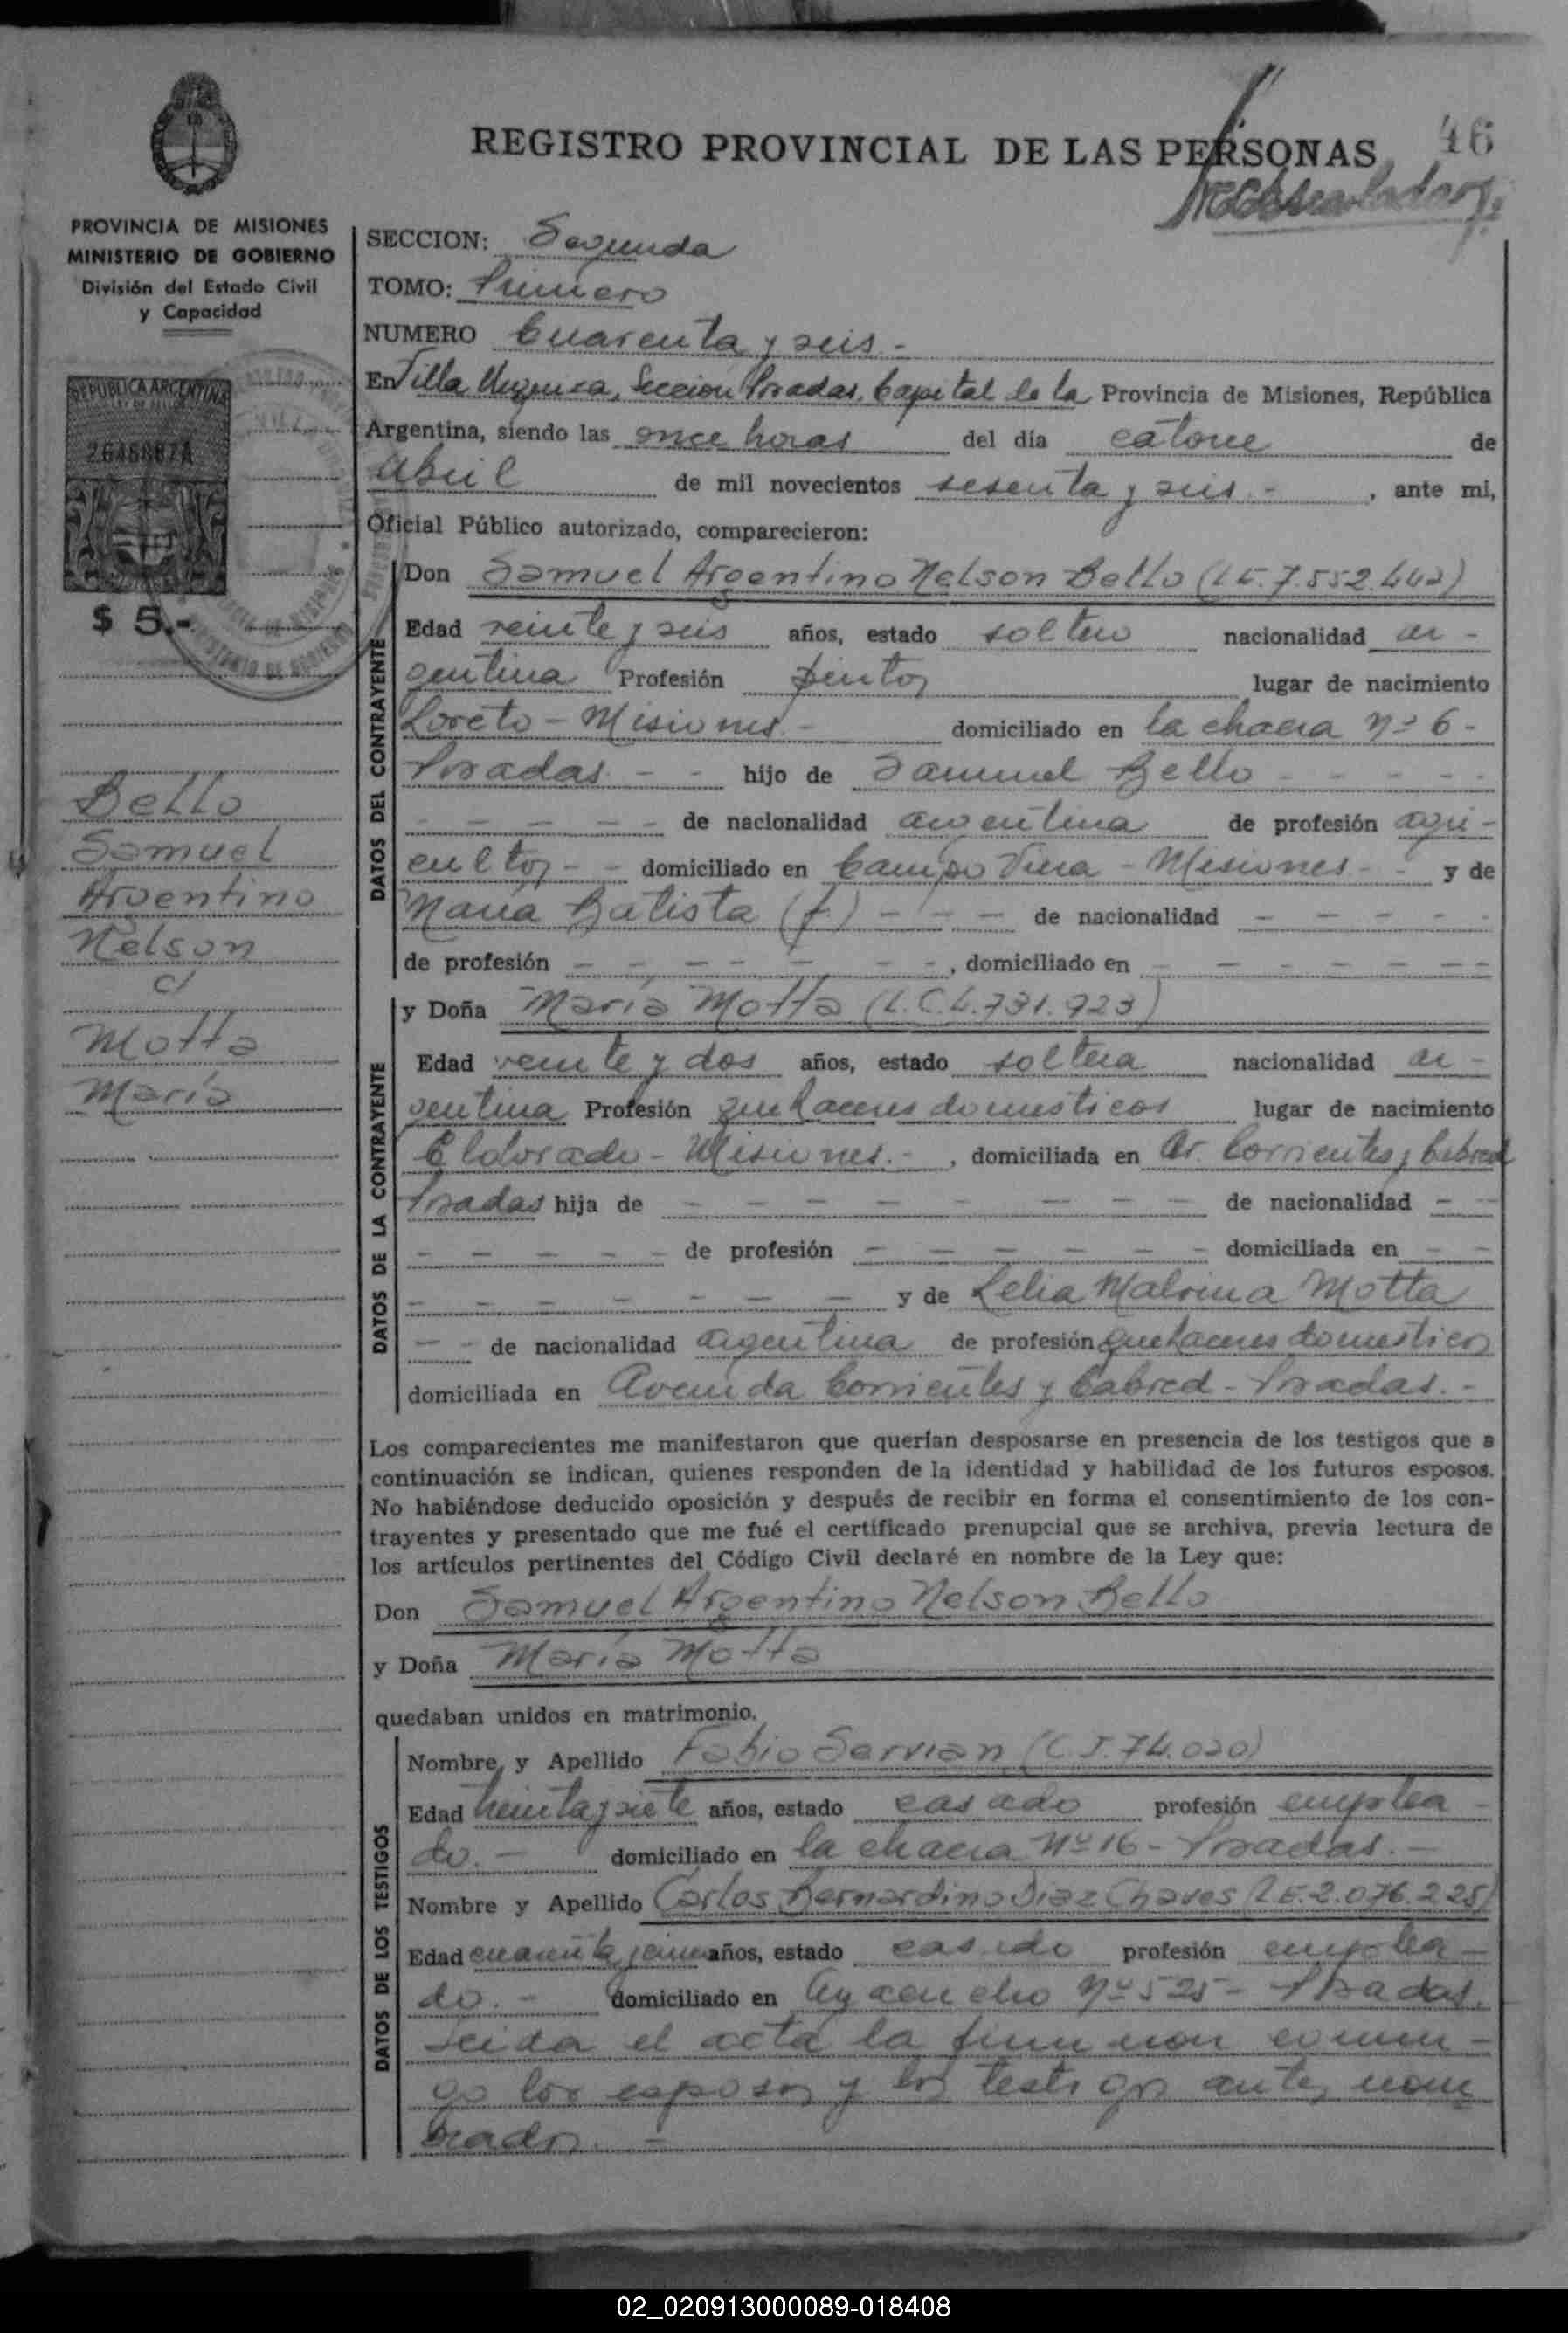 46
REGISTRO PROVINCIAL DE LAS PERSONAS
PROVINCIA DE MISIONES
MINISTERIO DE GOBIERNO
División del Estado Civil
y Capacidad
REPUBLICA ARGENTINA
$ 5.-
Bello
Samuel
Argentino
Nelson
c/
Motta
María
SECCION: Segunda
TOMO: Primero
NUMERO Cuarenta y seis.-
En Villa Urquiza, Seccion Posadas, Capital de la Provincia de Misiones, República
Argentina, siendo las once horas del día catorce de
abril de mil novecientos sesenta y seis.- , ante mi,
Oficial Público autorizado, comparecieron:
DATOS DEL CONTRAYENTE
Don Samuel Argentino Nelson Bello (L.E. 7.552.442)
Edad veinte y seis años, estado soltero nacionalidad ar-
gentina Profesión pintor lugar de nacimiento
Loreto - Misiones.- domiciliado en la chacra Nº 6 -
Posadas - - hijo de Samuel Bello - - - - -
- - - - - de nacionalidad argentina de profesión agri-
cultor - - domiciliado en Campo Viera - Misiones - - y de
Maria Batista (f) - - - de nacionalidad - - - - -
de profesión - - - - - - -, domiciliado en - - - - - - -
DATOS DE LA CONTRAYENTE
y Doña María Motta (L.C. 4.731.923)
Edad veinte y dos años, estado soltera nacionalidad ar-
gentina Profesión quehaceres domesticos lugar de nacimiento
Eldorado - Misiones.- , domiciliada en Av. Corrientes y Cabred
Posadas hija de - - - - - - - - - de nacionalidad - -
- - - - - de profesión - - - - - - - domiciliada en - -
- - - - - - - y de Lelia Malvina Motta
- - de nacionalidad argentina de profesión quehaceres domesticos
domiciliada en Avenida Corrientes y Cabred - Posadas.-
Los comparecientes me manifestaron que querían desposarse en presencia de los testigos que a
continuación se indican, quienes responden de la identidad y habilidad de los futuros esposos.
No habiéndose deducido oposición y después de recibir en forma el consentimiento de los con-
trayentes y presentado que me fué el certificado prenupcial que se archiva, previa lectura de
los artículos pertinentes del Código Civil declaré en nombre de la Ley que:
Don Samuel Argentino Nelson Bello
y Doña María Motta
quedaban unidos en matrimonio.
DATOS DE LOS TESTIGOS
Nombre y Apellido Fabio Servian (C.I. 74.020)
Edad treinta y siete años, estado casado profesión emplea-
do.- domiciliado en la chacra Nº 16 - Posadas.-
Nombre y Apellido Carlos Bernardino Diaz Chaves (L.E. 2.076.225)
Edad cuarenta y años, estado casado profesión emplea-
do.- domiciliado en Ayacucho Nº 525 - Posadas.
Leida el acta la firmaron conmi-
go los esposos y los testigos antes nom
brados.-
02_020913000089-018408